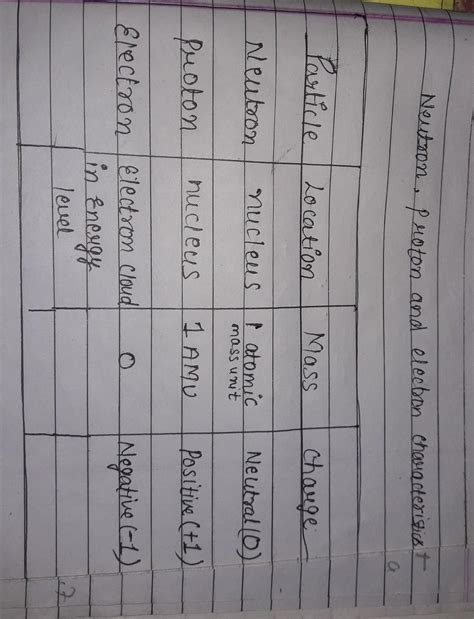 Neutron, proton and electron characterisist
Particle Location Mass Charge
Neutron nucleus 1 atomic mass unit Neutral (0)
Proton nucleus 1 AMU Positive (+1)
Electron Electron cloud 0 Negative (-1)
in Energy
level